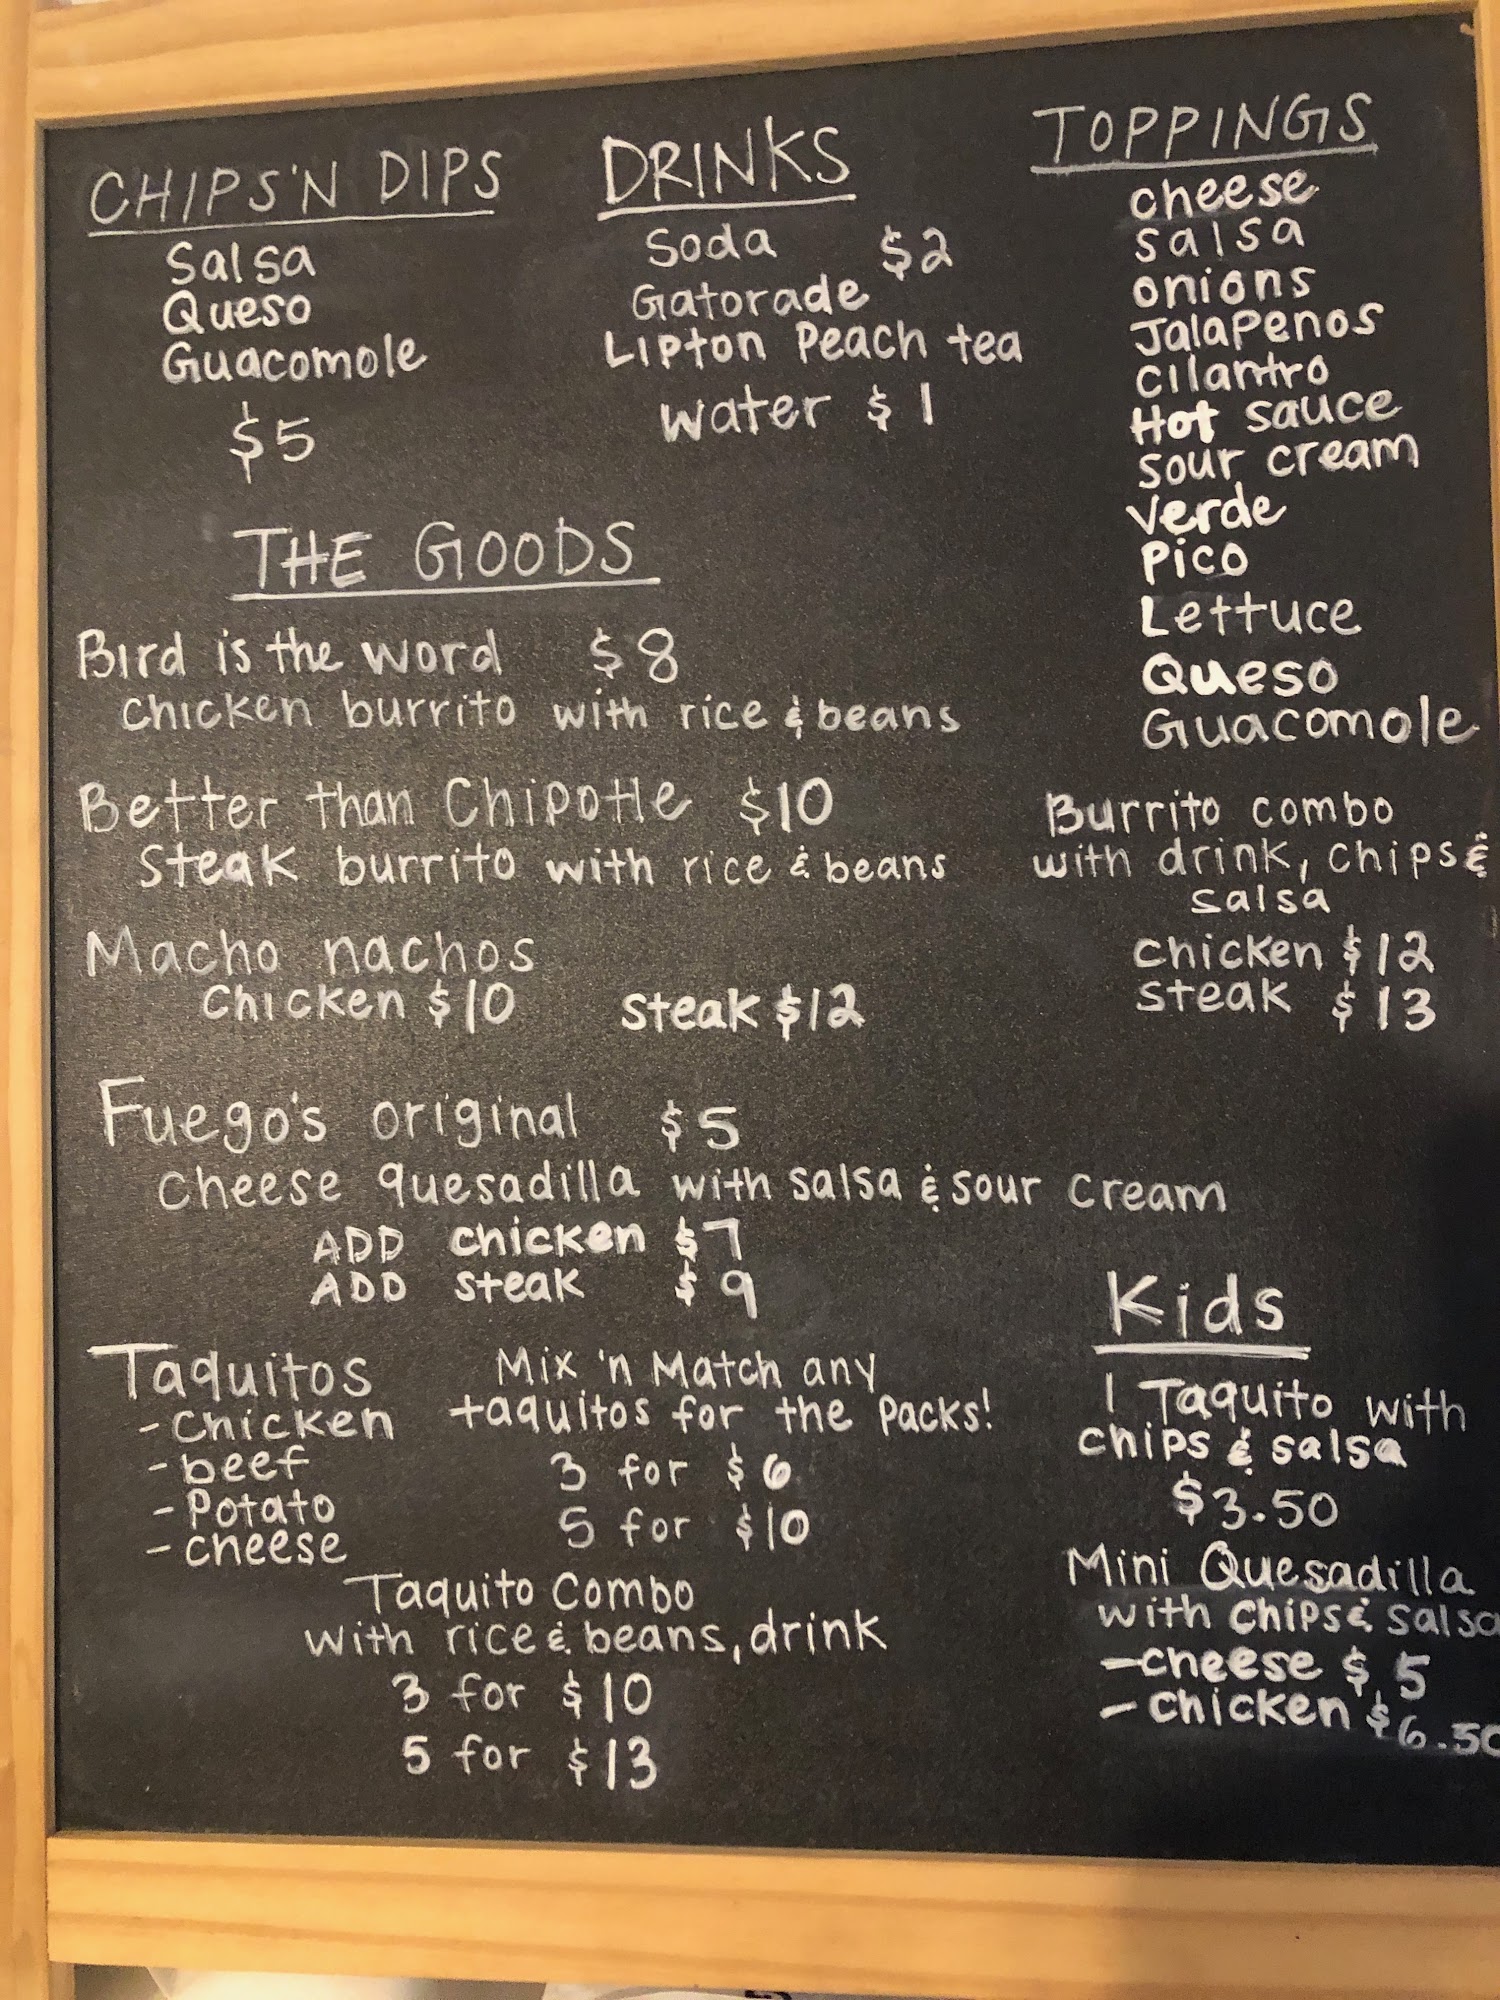 CHIPS'N DIPS
Salsa
Queso
Guacomole
$5
DRINKS
Soda $2
Gatorade
Lipton Peach tea
water $1
TOPPINGS
cheese
salsa
onions
Jalapenos
cilantro
Hot sauce
sour cream
verde
Pico
Lettuce
Queso
Guacomole
THE GOODS
Bird is the word $8
chicken burrito with rice & beans
Better than Chipotle $10
Steak burrito with rice & beans
Macho nachos
Chicken $10 steak $12
Burrito combo
with drink, chips &
salsa
chicken $12
steak $13
Fuego's original $5
cheese quesadilla with salsa & sour cream
ADD chicken $7
ADD steak $9
Taquitos
- Chicken
- beef
- Potato
- cheese
Mix 'n Match any
taquitos for the packs!
3 for $6
5 for $10
Taquito Combo
with rice & beans, drink
3 for $10
5 for $13
Kids
1 Taquito with
chips & salsa
$3.50
Mini Quesadilla
with chips & salsa
- cheese $5
- chicken $6.50